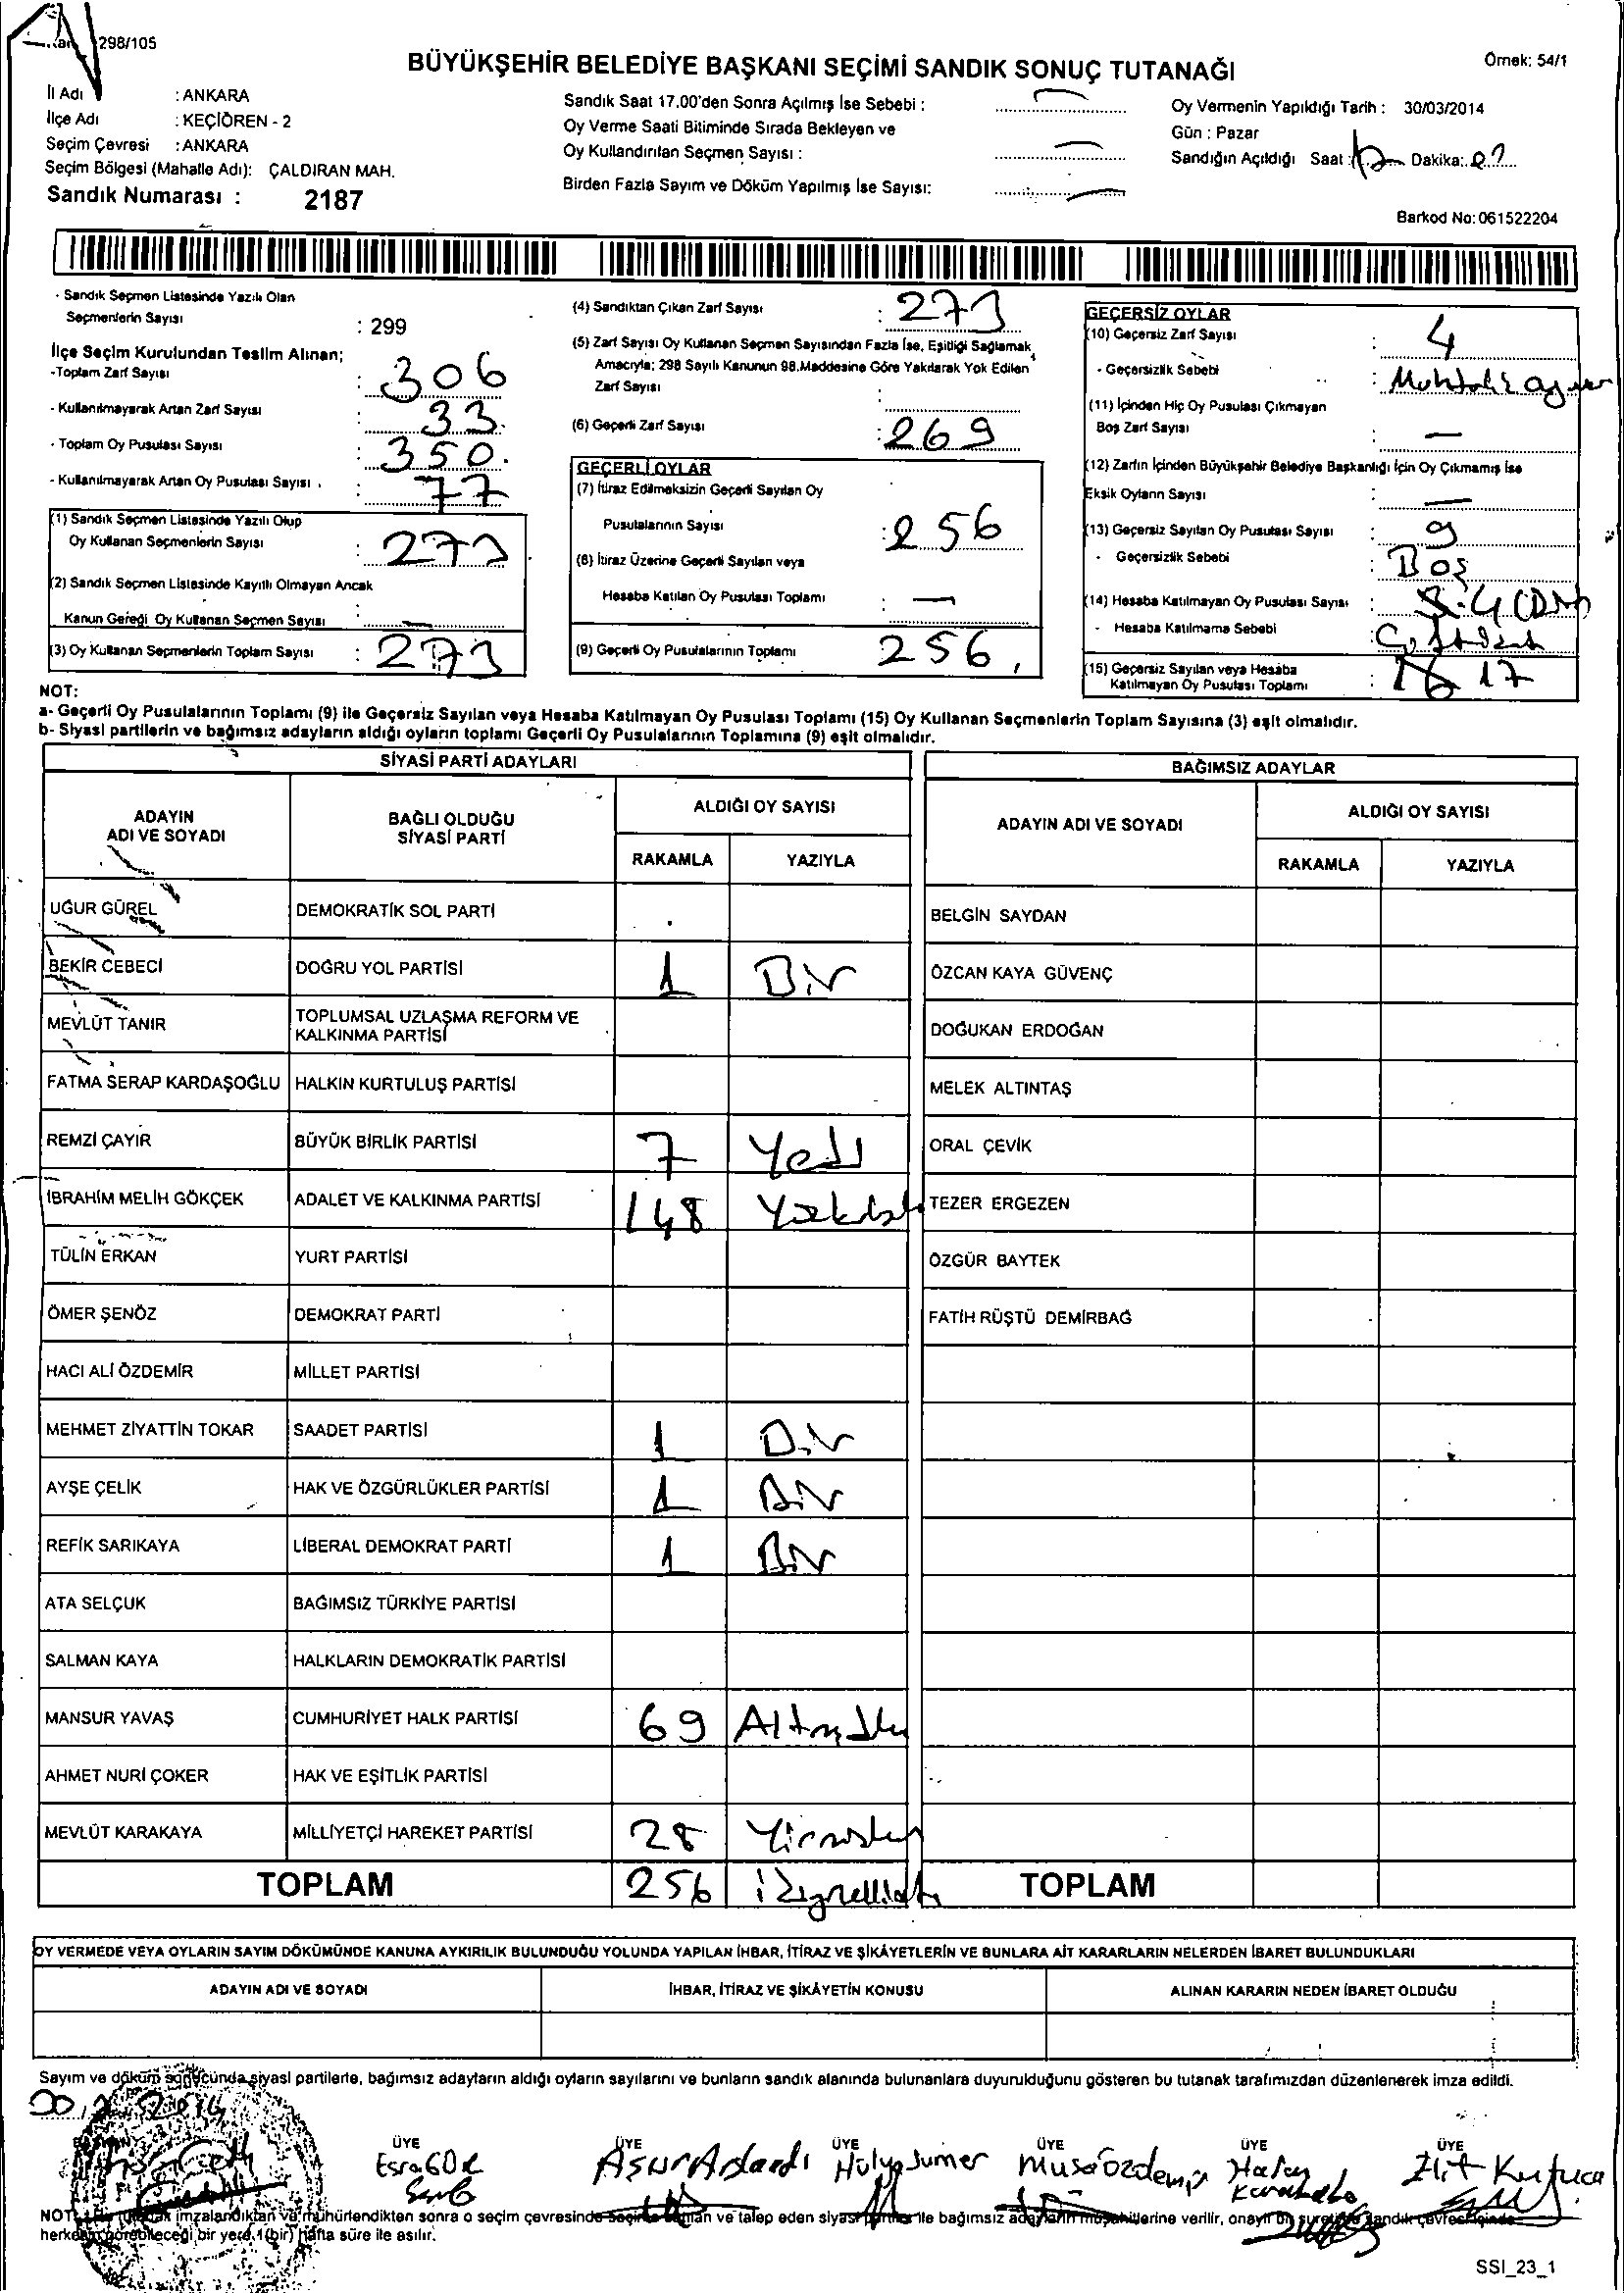 298/105
Örnek: 54/1
BÜYÜKŞEHİR BELEDİYE BAŞKANI SEÇİMİ SANDIK SONUÇ TUTANAĞI
İl Adı : ANKARA
İlçe Adı : KEÇİÖREN - 2
Seçim Çevresi : ANKARA
Seçim Bölgesi (Mahalle Adı): ÇALDIRAN MAH.
Sandık Numarası : 2187
Sandık Saat 17.00'den Sonra Açılmış İse Sebebi : —
Oy Verme Saati Bitiminde Sırada Bekleyen ve
Oy Kullandırılan Seçmen Sayısı : —
Birden Fazla Sayım ve Döküm Yapılmış İse Sayısı: —
Oy Vermenin Yapıldığı Tarih : 30/03/2014
Gün : Pazar
Sandığın Açıldığı Saat : Dakika:
Barkod No: 061522204
- Sandık Seçmen Listesinde Yazılı Olan
Seçmenlerin Sayısı : 299
İlçe Seçim Kurulundan Teslim Alınan;
-Toplam Zarf Sayısı : 306
- Kullanılmayarak Artan Zarf Sayısı : 33
- Toplam Oy Pusulası Sayısı : 350
- Kullanılmayarak Artan Oy Pusulası Sayısı : 77
(1) Sandık Seçmen Listesinde Yazılı Olup
Oy Kullanan Seçmenlerin Sayısı : 273
(2) Sandık Seçmen Listesinde Kayıtlı Olmayan Ancak
Kanun Gereği Oy Kullanan Seçmen Sayısı : —
(3) Oy Kullanan Seçmenlerin Toplam Sayısı : 273
(4) Sandıktan Çıkan Zarf Sayısı : 273
(5) Zarf Sayısı Oy Kullanan Seçmen Sayısından Fazla İse, Eşitliği Sağlamak
Amacıyla; 298 Sayılı Kanunun 98.Maddesine Göre Yakılarak Yok Edilen
Zarf Sayısı :
(6) Geçerli Zarf Sayısı : 269
GEÇERLİ OYLAR
(7) İtiraz Edilmeksizin Geçerli Sayılan Oy
Pusulalarının Sayısı : 256
(8) İtiraz Üzerine Geçerli Sayılan veya
Hesaba Katılan Oy Pusulası Toplamı : —
(9) Geçerli Oy Pusulalarının Toplamı 256
GEÇERSİZ OYLAR
(10) Geçersiz Zarf Sayısı : 4
- Geçersizlik Sebebi :
(11) İçinden Hiç Oy Pusulası Çıkmayan
Boş Zarf Sayısı : —
(12) Zarfın İçinden Büyükşehir Belediye Başkanlığı İçin Oy Çıkmamış İse
Eksik Oyların Sayısı : —
(13) Geçersiz Sayılan Oy Pusulası Sayısı : 9
- Geçersizlik Sebebi : Boş
(14) Hesaba Katılmayan Oy Pusulası Sayısı :
- Hesaba Katılmama Sebebi :
(15) Geçersiz Sayılan veya Hesaba
Katılmayan Oy Pusulası Toplamı : 17
NOT:
a- Geçerli Oy Pusulalarının Toplamı (9) ile Geçersiz Sayılan veya Hesaba Katılmayan Oy Pusulası Toplamı (15) Oy Kullanan Seçmenlerin Toplam Sayısına (3) eşit olmalıdır.
b- Siyasi partilerin ve bağımsız adayların aldığı oyların toplamı Geçerli Oy Pusulalarının Toplamına (9) eşit olmalıdır.
SİYASİ PARTİ ADAYLARI
ADAYIN ADI VE SOYADI
BAĞLI OLDUĞU SİYASİ PARTİ
ALDIĞI OY SAYISI
RAKAMLA YAZIYLA
UĞUR GÜREL DEMOKRATİK SOL PARTİ
BEKİR CEBECİ DOĞRU YOL PARTİSİ 1 Bir
MEVLÜT TANIR TOPLUMSAL UZLAŞMA REFORM VE
KALKINMA PARTİSİ
FATMA SERAP KARDAŞOĞLU HALKIN KURTULUŞ PARTİSİ
REMZİ ÇAYIR BÜYÜK BİRLİK PARTİSİ 7 Yedi
İBRAHİM MELİH GÖKÇEK ADALET VE KALKINMA PARTİSİ 148
TÜLİN ERKAN YURT PARTİSİ
ÖMER ŞENÖZ DEMOKRAT PARTİ
HACI ALİ ÖZDEMİR MİLLET PARTİSİ
MEHMET ZİYATTİN TOKAR SAADET PARTİSİ 1 Bir
AYŞE ÇELİK HAK VE ÖZGÜRLÜKLER PARTİSİ 1 Bir
REFİK SARIKAYA LİBERAL DEMOKRAT PARTİ 1 Bir
ATA SELÇUK BAĞIMSIZ TÜRKİYE PARTİSİ
SALMAN KAYA HALKLARIN DEMOKRATİK PARTİSİ
MANSUR YAVAŞ CUMHURİYET HALK PARTİSİ 69
AHMET NURİ ÇOKER HAK VE EŞİTLİK PARTİSİ
MEVLÜT KARAKAYA MİLLİYETÇİ HAREKET PARTİSİ 28
TOPLAM 256
BAĞIMSIZ ADAYLAR
ADAYIN ADI VE SOYADI
ALDIĞI OY SAYISI
RAKAMLA YAZIYLA
BELGİN SAYDAN
ÖZCAN KAYA GÜVENÇ
DOĞUKAN ERDOĞAN
MELEK ALTINTAŞ
ORAL ÇEVİK
TEZER ERGEZEN
ÖZGÜR BAYTEK
FATİH RÜŞTÜ DEMİRBAĞ
TOPLAM
OY VERMEDE VEYA OYLARIN SAYIM DÖKÜMÜNDE KANUNA AYKIRILIK BULUNDUĞU YOLUNDA YAPILAN İHBAR, İTİRAZ VE ŞİKÂYETLERİN VE BUNLARA AİT KARARLARIN NELERDEN İBARET BULUNDUKLARI
ADAYIN ADI VE SOYADI İHBAR, İTİRAZ VE ŞİKÂYETİN KONUSU ALINAN KARARIN NEDEN İBARET OLDUĞU
Sayım ve döküm sonucunda siyasi partilerle, bağımsız adayların aldığı oyların sayılarını ve bunların sandık alanında bulunanlara duyurulduğunu gösteren bu tutanak tarafımızdan düzenlenerek imza edildi.
ÜYE ÜYE ÜYE ÜYE ÜYE ÜYE
Esra GÖR Hülya Musa Özdemir
NOT: imzalandıktan ve mühürlendikten sonra o seçim çevresinde ve talep eden siyasi ile bağımsız adayların müşahitlerine verilir, onaylı bir sureti de sandık çevresi içinde
herkesin görebileceği bir yere 1 (bir) hafta süre ile asılır.
SSI_23_1